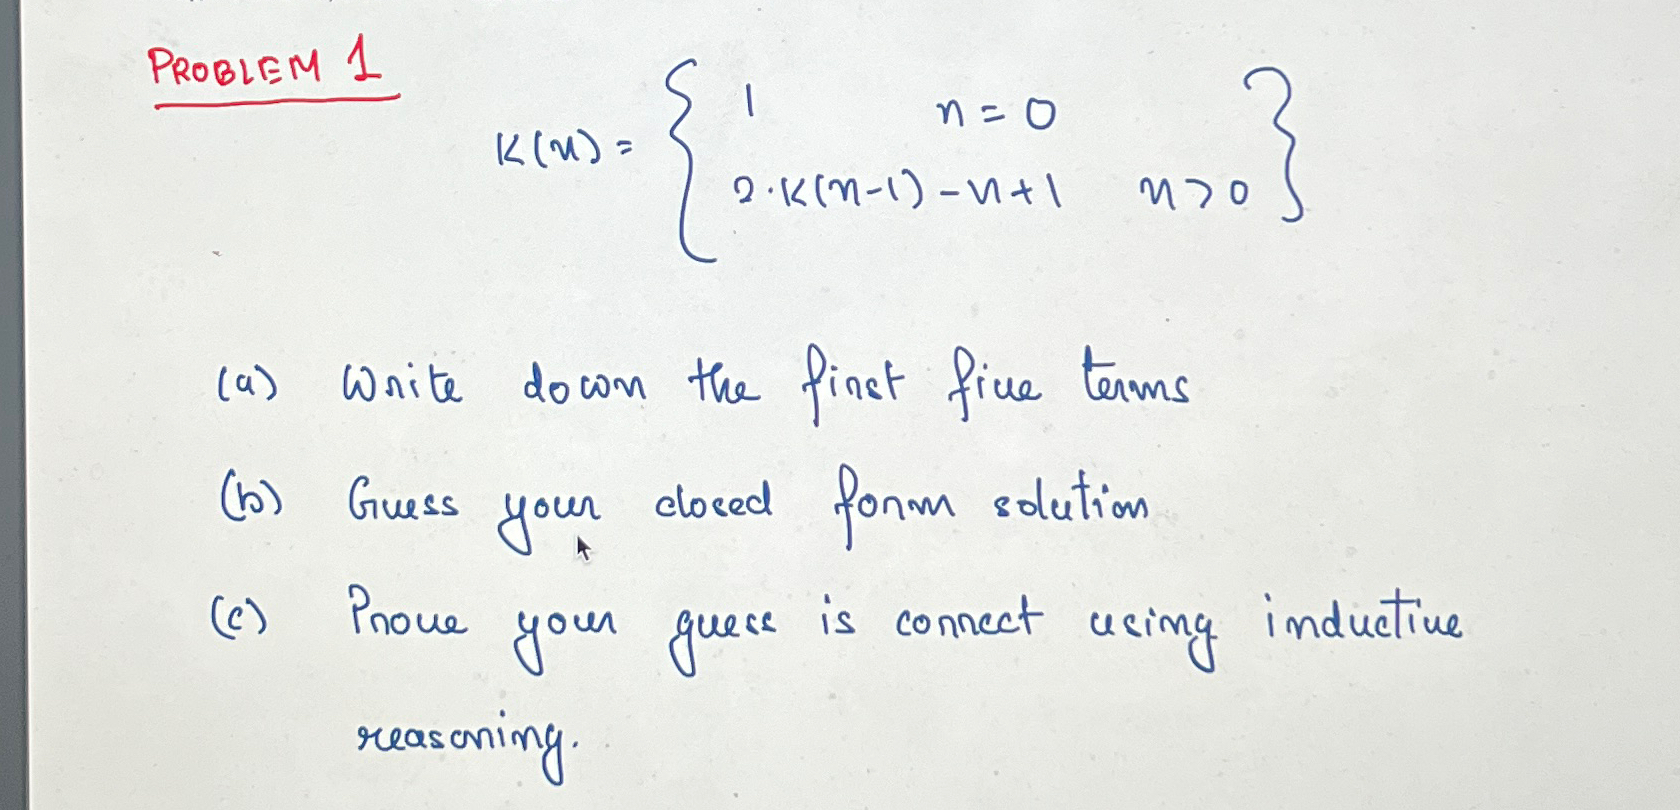 PROBLEM 1
K(n) = { 1 n = 0
2·K(n-1) - n + 1 n > 0 }
(a) Write down the first five terms
(b) Guess your closed form solution
(c) Prove your guess is correct using inductive
reasoning.